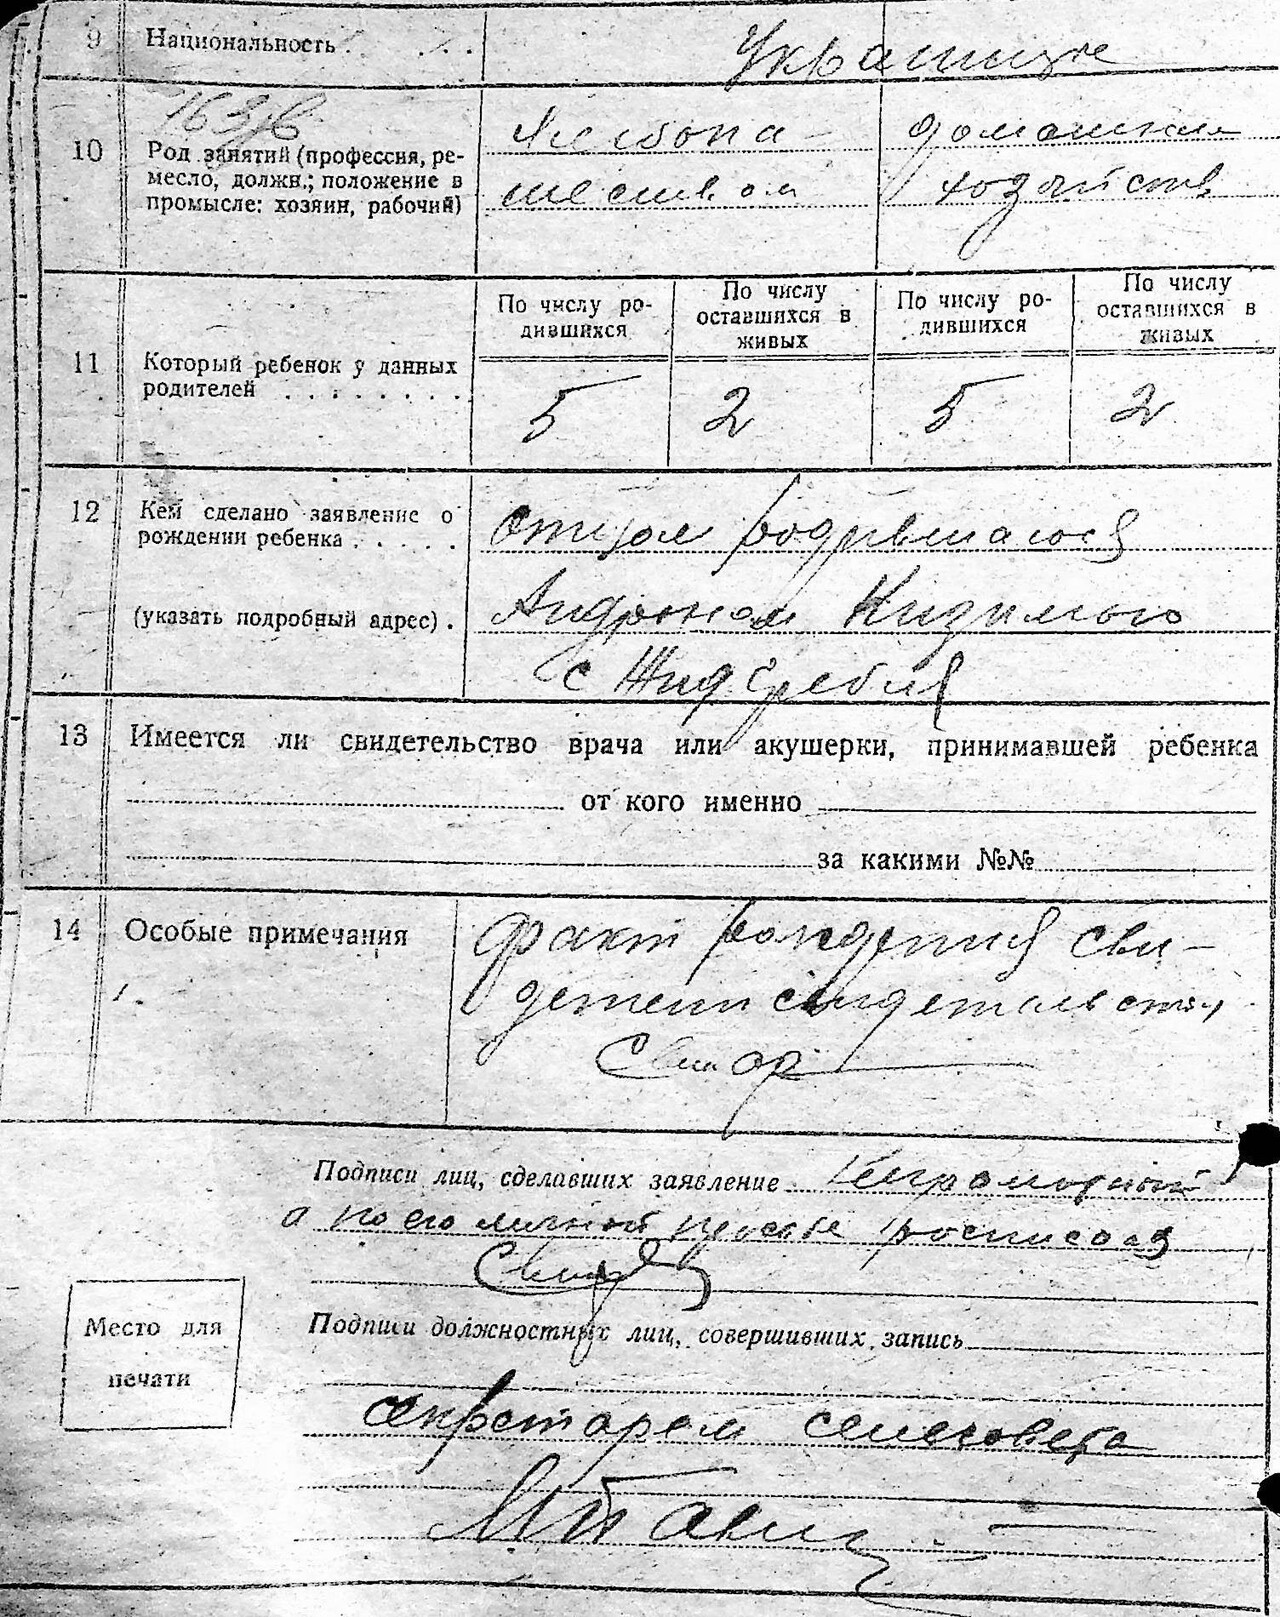 9 Национальность . . . Украинцы
163/в
10 Род занятий (профессия, ре-
месло, должн.; положение в
промысле: хозяин, рабочий)
Хлебопа-
шеством
домашним
хозяйств
11 Который ребенок у данных
родителей . . . . . . . .
По числу ро-
дившихся
По числу
оставшихся в
живых
По числу ро-
дившихся
По числу
оставшихся в
живых
5 2 5 2
12 Кем сделано заявление о
рождении ребенка . . . . .
(указать подробный адрес) .
отцом родившагося
Андроном Кизимою
с Жид. Гребля
13 Имеется ли свидетельство врача или акушерки, принимавшей ребенка
от кого именно
за какими №№
14 Особые примечания
факт рождения сви-
детели свидетельствуют
Подписи лиц, сделавших заявление неграмотный
а по его личной просьбе росписался
Место для
печати
Подписи должностных лиц, совершивших запись
секретарем сельсовета